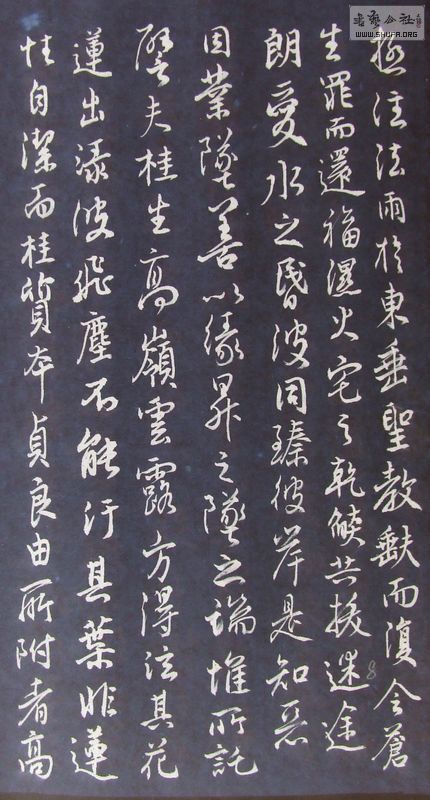 極注法雨於東垂聖教缺而復全蒼
生罪而還福濕火宅之乾燄共拔迷途
朗愛水之昏波同臻彼岸是知惡
因業墜善以緣昇々墜之端惟所託
譬夫桂生高嶺雲露方得泫其花
蓮出淥波飛塵不能汙其葉非蓮
性自潔而桂質本貞良由所附者高
8
書藝公社
WWW.SHUFA.ORG